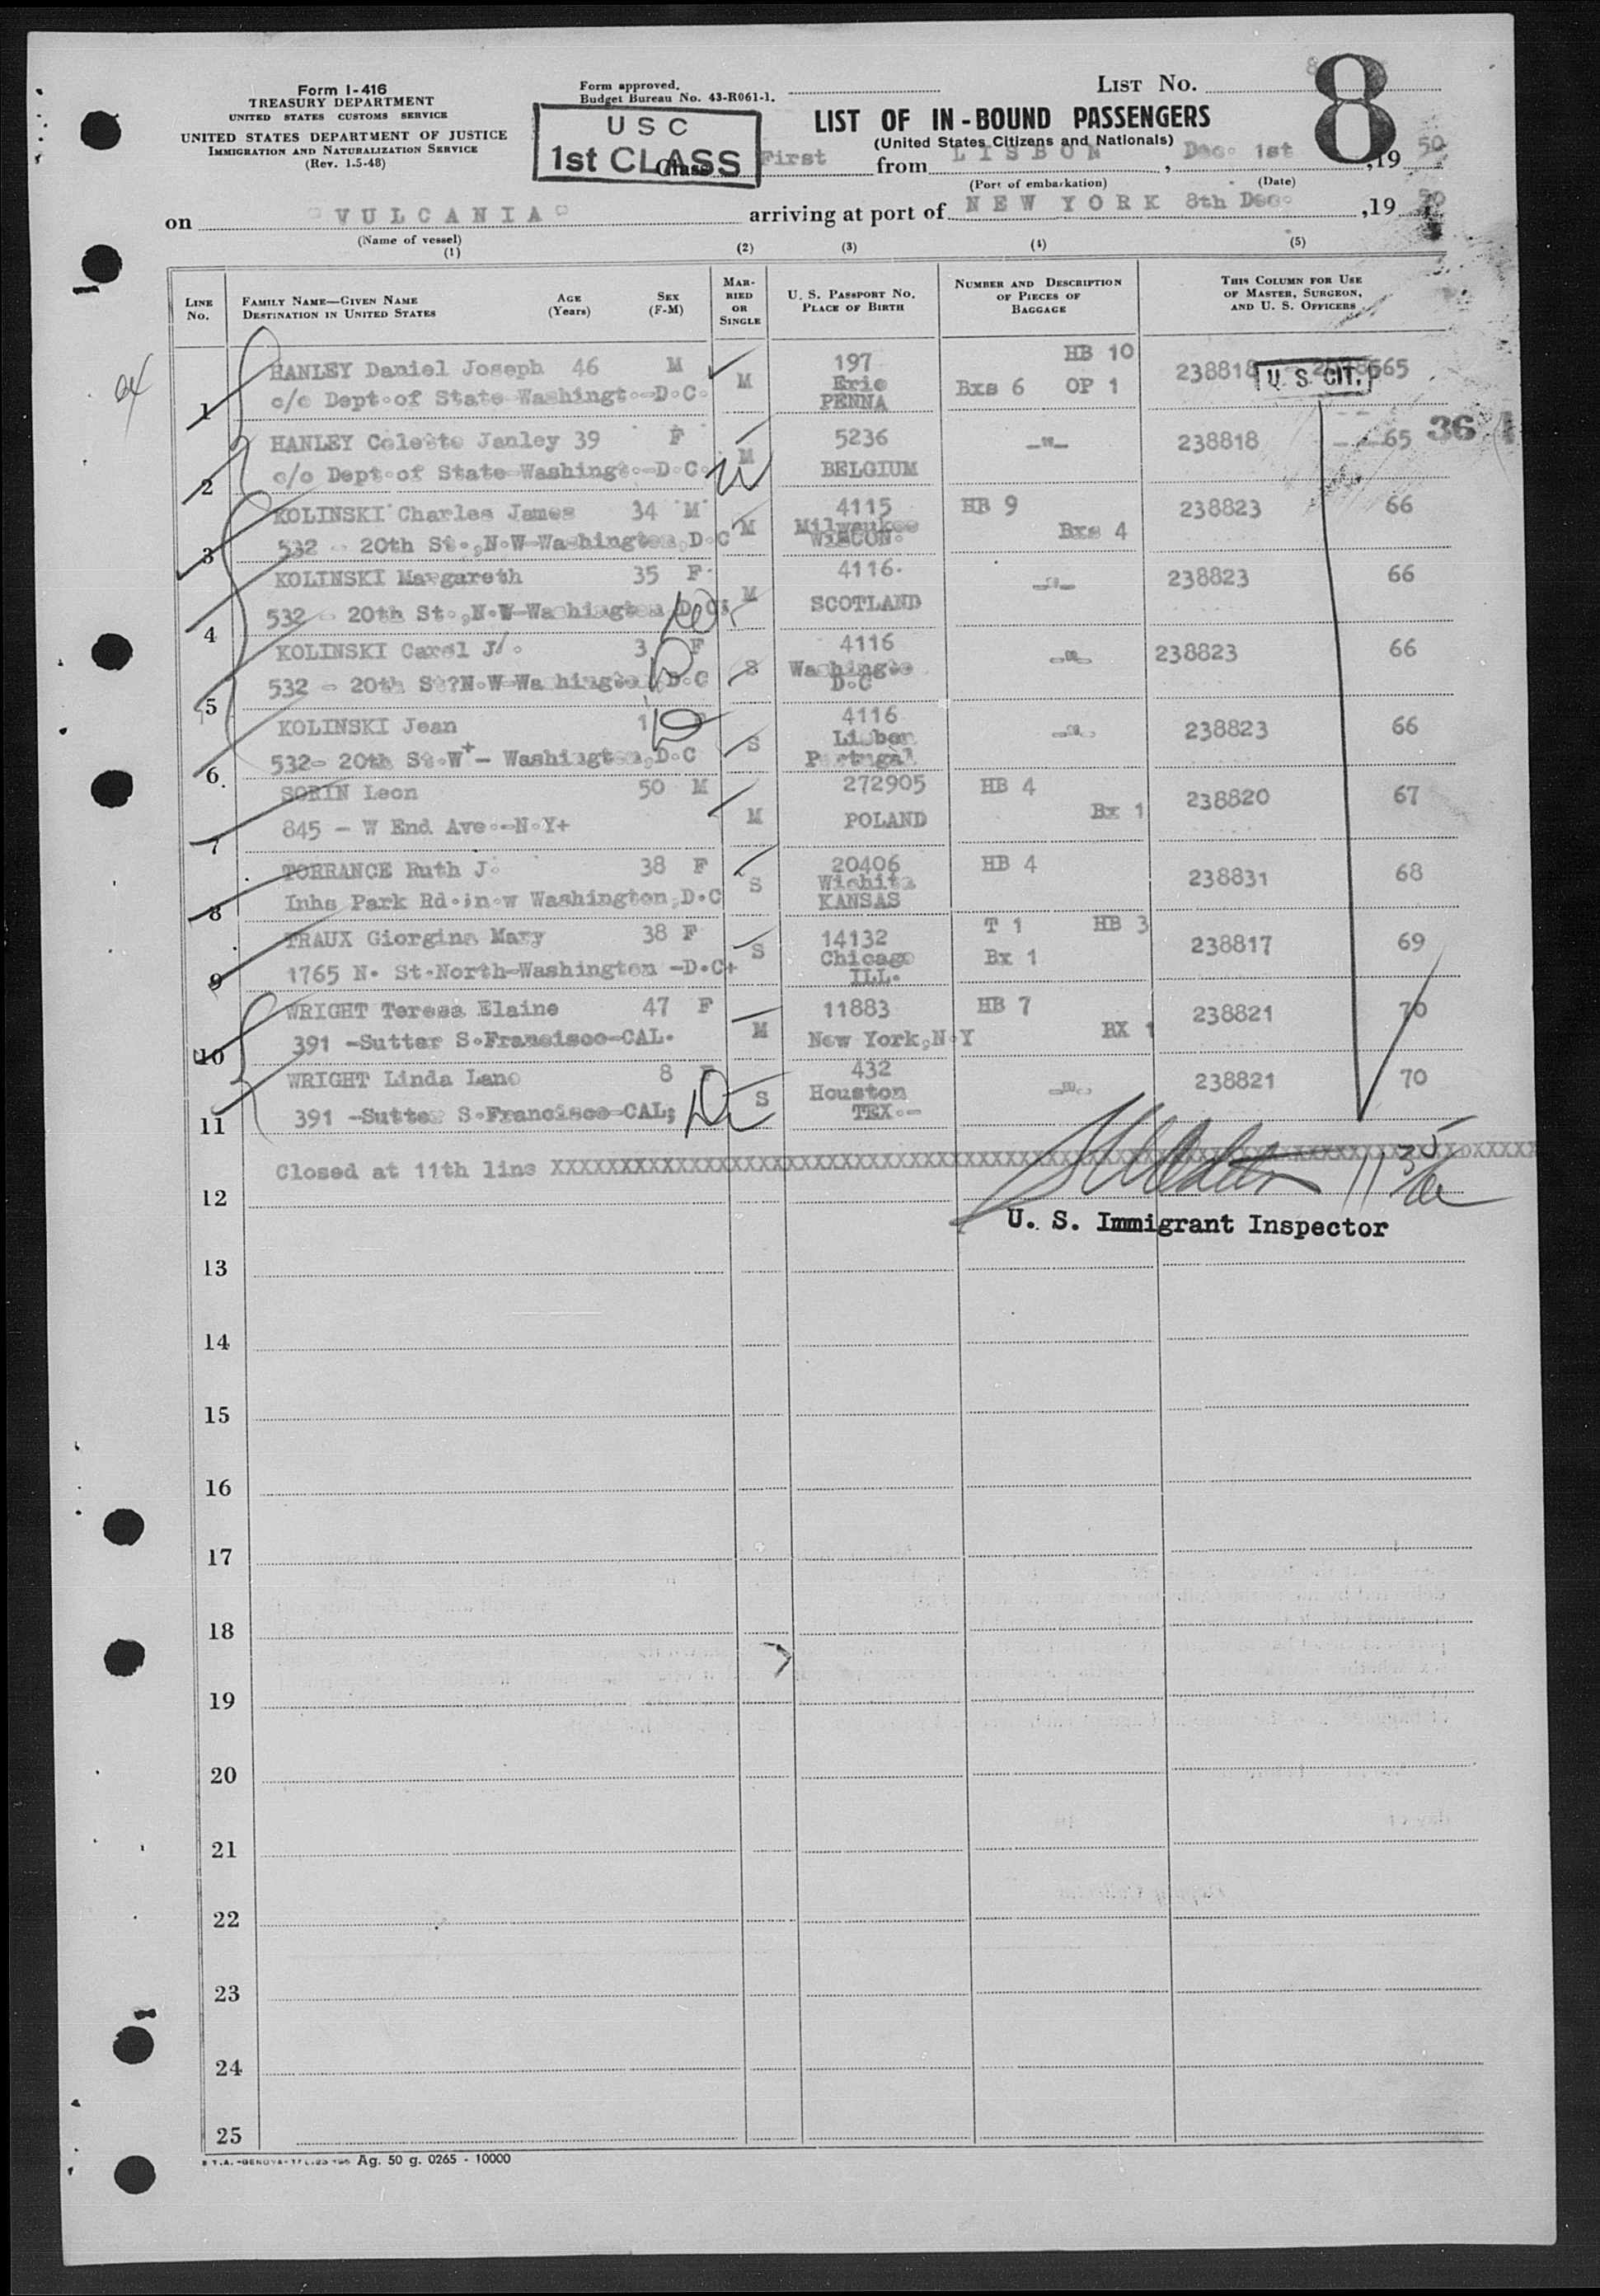 LIST No. 8
Form I-416
TREASURY DEPARTMENT
UNITED STATES CUSTOMS SERVICE
UNITED STATES DEPARTMENT OF JUSTICE
IMMIGRATION AND NATURALIZATION SERVICE
(Rev. 1-5-48)
Form approved.
Budget Bureau No. 43-R061-1.
USC
1st CLASS
LIST OF IN-BOUND PASSENGERS
(United States Citizens and Nationals)
Class First from LISBON, Dec. 1st, 19 50
(Port of embarkation) (Date)
on "VULCANIA" arriving at port of NEW YORK 8th Dec. ,19 50
(Name of vessel)
(1) (2) (3) (4) (5)
LINE No.
FAMILY NAME—GIVEN NAME
DESTINATION IN UNITED STATES
AGE (Years)
SEX (F-M)
MARRIED OR SINGLE
U. S. PASSPORT No.
PLACE OF BIRTH
NUMBER AND DESCRIPTION OF PIECES OF BAGGAGE
THIS COLUMN FOR USE OF MASTER, SURGEON, AND U. S. OFFICERS
1 HANLEY Daniel Joseph 46 M M 197 HB 10 238818 65
c/o Dept.of State Washingt.-D.C. Erie PENNA Bxs 6 OP 1
U S CIT.
2 HANLEY Celeste Janley 39 F M 5236 -"- 238818 65 36
c/o Dept.of State-Washingt.-D.C. BELGIUM
3 KOLINSKI Charles James 34 M M 4115 HB 9 238823 66
532 - 20th St.,N.W-Washington,D.C Milwaukee WISCON. Bxs 4
4 KOLINSKI Margareth 35 F. M 4116. -"- 238823 66
532 - 20th St.,N.W-Washington D.C. SCOTLAND
5 KOLINSKI Carol J. 3 F S 4116 -"- 238823 66
532 - 20th St?N.W-Washington D.C Washingto D.C
6 KOLINSKI Jean 1 S 4116 -"- 238823 66
532- 20th St.W+- Washington,D.C Lisbon Portugal
7 SORIN Leon 50 M M 272905 HB 4 238820 67
845 - W End Ave.-N.Y+ POLAND Bx 1
8 TORRANCE Ruth J. 38 F S 20406 HB 4 238831 68
Inhs Park Rd.n.w Washington,D.C Wichita KANSAS
9 TRAUX Giorgina Mary 38 F S 14132 T 1 HB 3 238817 69
1765 N. St.North-Washington -D.C+ Chicago ILL. Bx 1
10 WRIGHT Teresa Elaine 47 F M 11883 HB 7 238821 70
391 -Sutter S.Francisco-CAL. New York,N.Y BX 1
11 WRIGHT Linda Lane 8 F S 432 -"- 238821 70
391 -Sutter S.Francisco-CAL; Houston TEX.-
Closed at 11th line XXXXXXXXXXXXXXXXXXXXXXXXXXXXXXXXXXXXXXXXXXXXXXXXXXXXXXXXXXXXXXXXXXXX
12
U. S. Immigrant Inspector
13
14
15
16
17
18
19
20
21
22
23
24
25
Ag. 50 g. 0265 - 10000